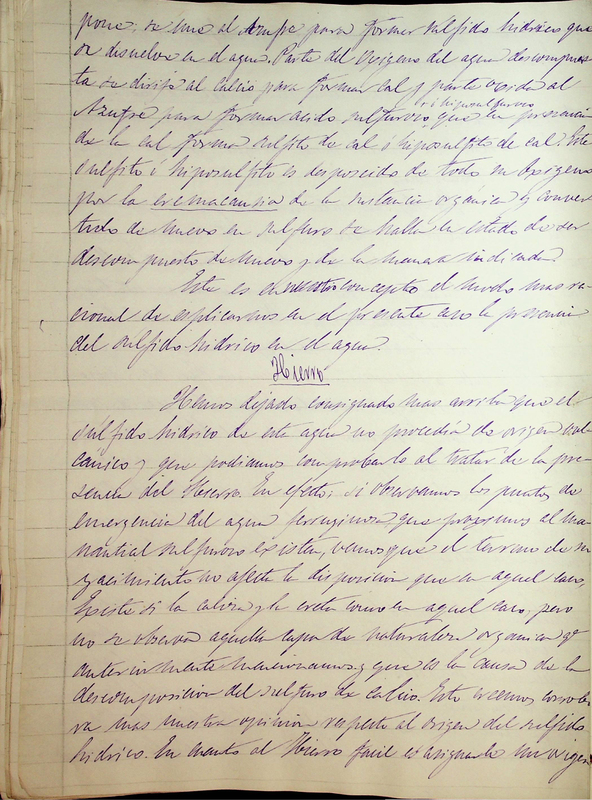 pone; se une al Azufre para formar sulfido hidrico que
se disuelve en el agua. Parte del oxigeno del agua descompues-
ta se dirije al calcio para formar cal y parte oxida al
Azufre para formar acido sulfuroso ó hiposulfuroso que en presencia
de la cal forma sulfito de cal ó hiposulfito de cal. Este
sulfito ó hiposulfito es desposeido de todo su oxigeno
por la eremacausia de la sustancia orgánica y conver-
tido de nuevo en sulfuro se halla en estado de ser
descompuesto de nuevo y de la manera indicada.
Este es en nuestro concepto el modo mas ra-
cional de esplicarnos en el presente caso la presencia
del sulfido hidrico en el agua.
Hierro
Hemos dejado consignado mas arriba que el
sulfido hidrico de esta agua no procedia de origen vol-
cánico y que podiamos comprobarlo al tratar de la pre-
sencia del Hierro. En efecto; si observamos los puntos de
emergencia del agua ferruginosa que proximos al ma-
nantial sulfuroso existen, vemos que el terreno de su
yacimiento no afecta la disposicion que en aquel caso,
Existe si la caliza y la creta como en aquel caso, pero
no se observa aquella capa de naturaleza organica qe
anteriormente mencionamos y que es la causa de la
descomposicion del sulfuro de calcio. Esto creemos corrobo-
ra mas nuestra opinion respecto al origen del sulfido
hidrico. En cuanto al Hierro facil es asignarle un origen